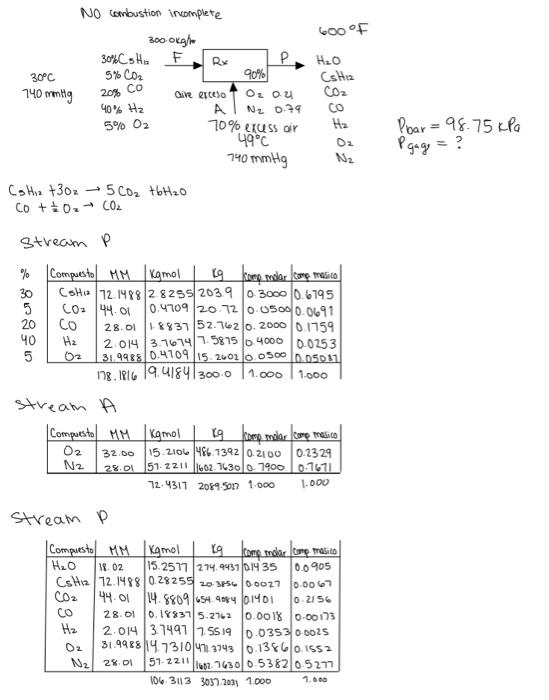 NO combustion incomplete
600°F
300.0 kg/hr
30% C5H12 F Rx P H2O
5% CO2 90% C5H12
30°C 20% CO aire exceso O2 0.21 CO2
740 mmHg 40% H2 A N2 0.79 CO
5% O2 70% excess air H2
49°C O2
740 mmHg N2
Pbar = 98.75 kPa
Pgage = ?
C5H12 + 3O2 → 5 CO2 + 6H2O
CO + ½ O2 → CO2
Stream P
% Compuesto MM Kgmol Kg Comp molar Comp masico
30 C5H12 72.1488 2.8255 203.9 0.3000 0.6795
5 CO2 44.01 0.4709 20.72 0.0500 0.0691
20 CO 28.01 1.8837 52.762 0.2000 0.1759
40 H2 2.014 3.7674 7.5875 0.4000 0.0253
5 O2 31.9988 0.4709 15.2602 0.0500 0.05087
178.1816 9.4184 300.0 1.000 1.000
Stream A
Compuesto MM Kgmol Kg Comp molar Comp masico
O2 32.00 15.2106 486.7392 0.2100 0.2329
N2 28.01 57.2211 1602.7630 0.7900 0.7671
72.4317 2089.5022 1.000 1.000
Stream P
Compuesto MM Kgmol Kg Comp molar Comp masico
H2O 18.02 15.2577 274.9437 0.1435 0.0905
C5H12 72.1488 0.28255 20.3856 0.0027 0.0067
CO2 44.01 14.8809 654.9084 0.1401 0.2156
CO 28.01 0.18837 5.2762 0.0018 0.00173
H2 2.014 3.7497 7.5519 0.0353 0.0025
O2 31.9988 14.7310 471.3743 0.1386 0.1552
N2 28.01 57.2211 1602.7630 0.5382 0.5277
106.3113 3037.2031 1.000 1.000